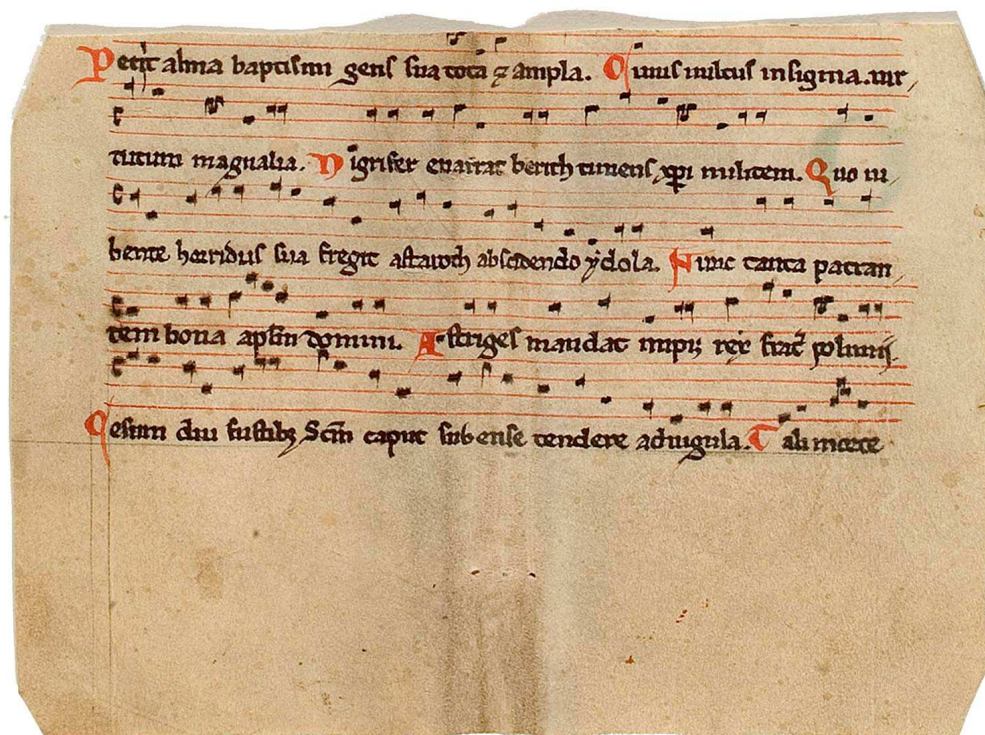 Petit alma baptismi gens sua tota ⁊ ampla. Cuius uultus insignia. uir
tutum magnalia. Nigrifer enarrat berith timens xp̄i militem. Quo iu
bente horridus sua fregit astaroth abscidendo ydola. Nunc tanta patran
tem bona apl̄m domini. Astriges mandat impiꝰ rex frat̄ polimij.
Cesum diu fustibꝫ Sc̄m caput sub ense tendere ad iugula. Tali mcete